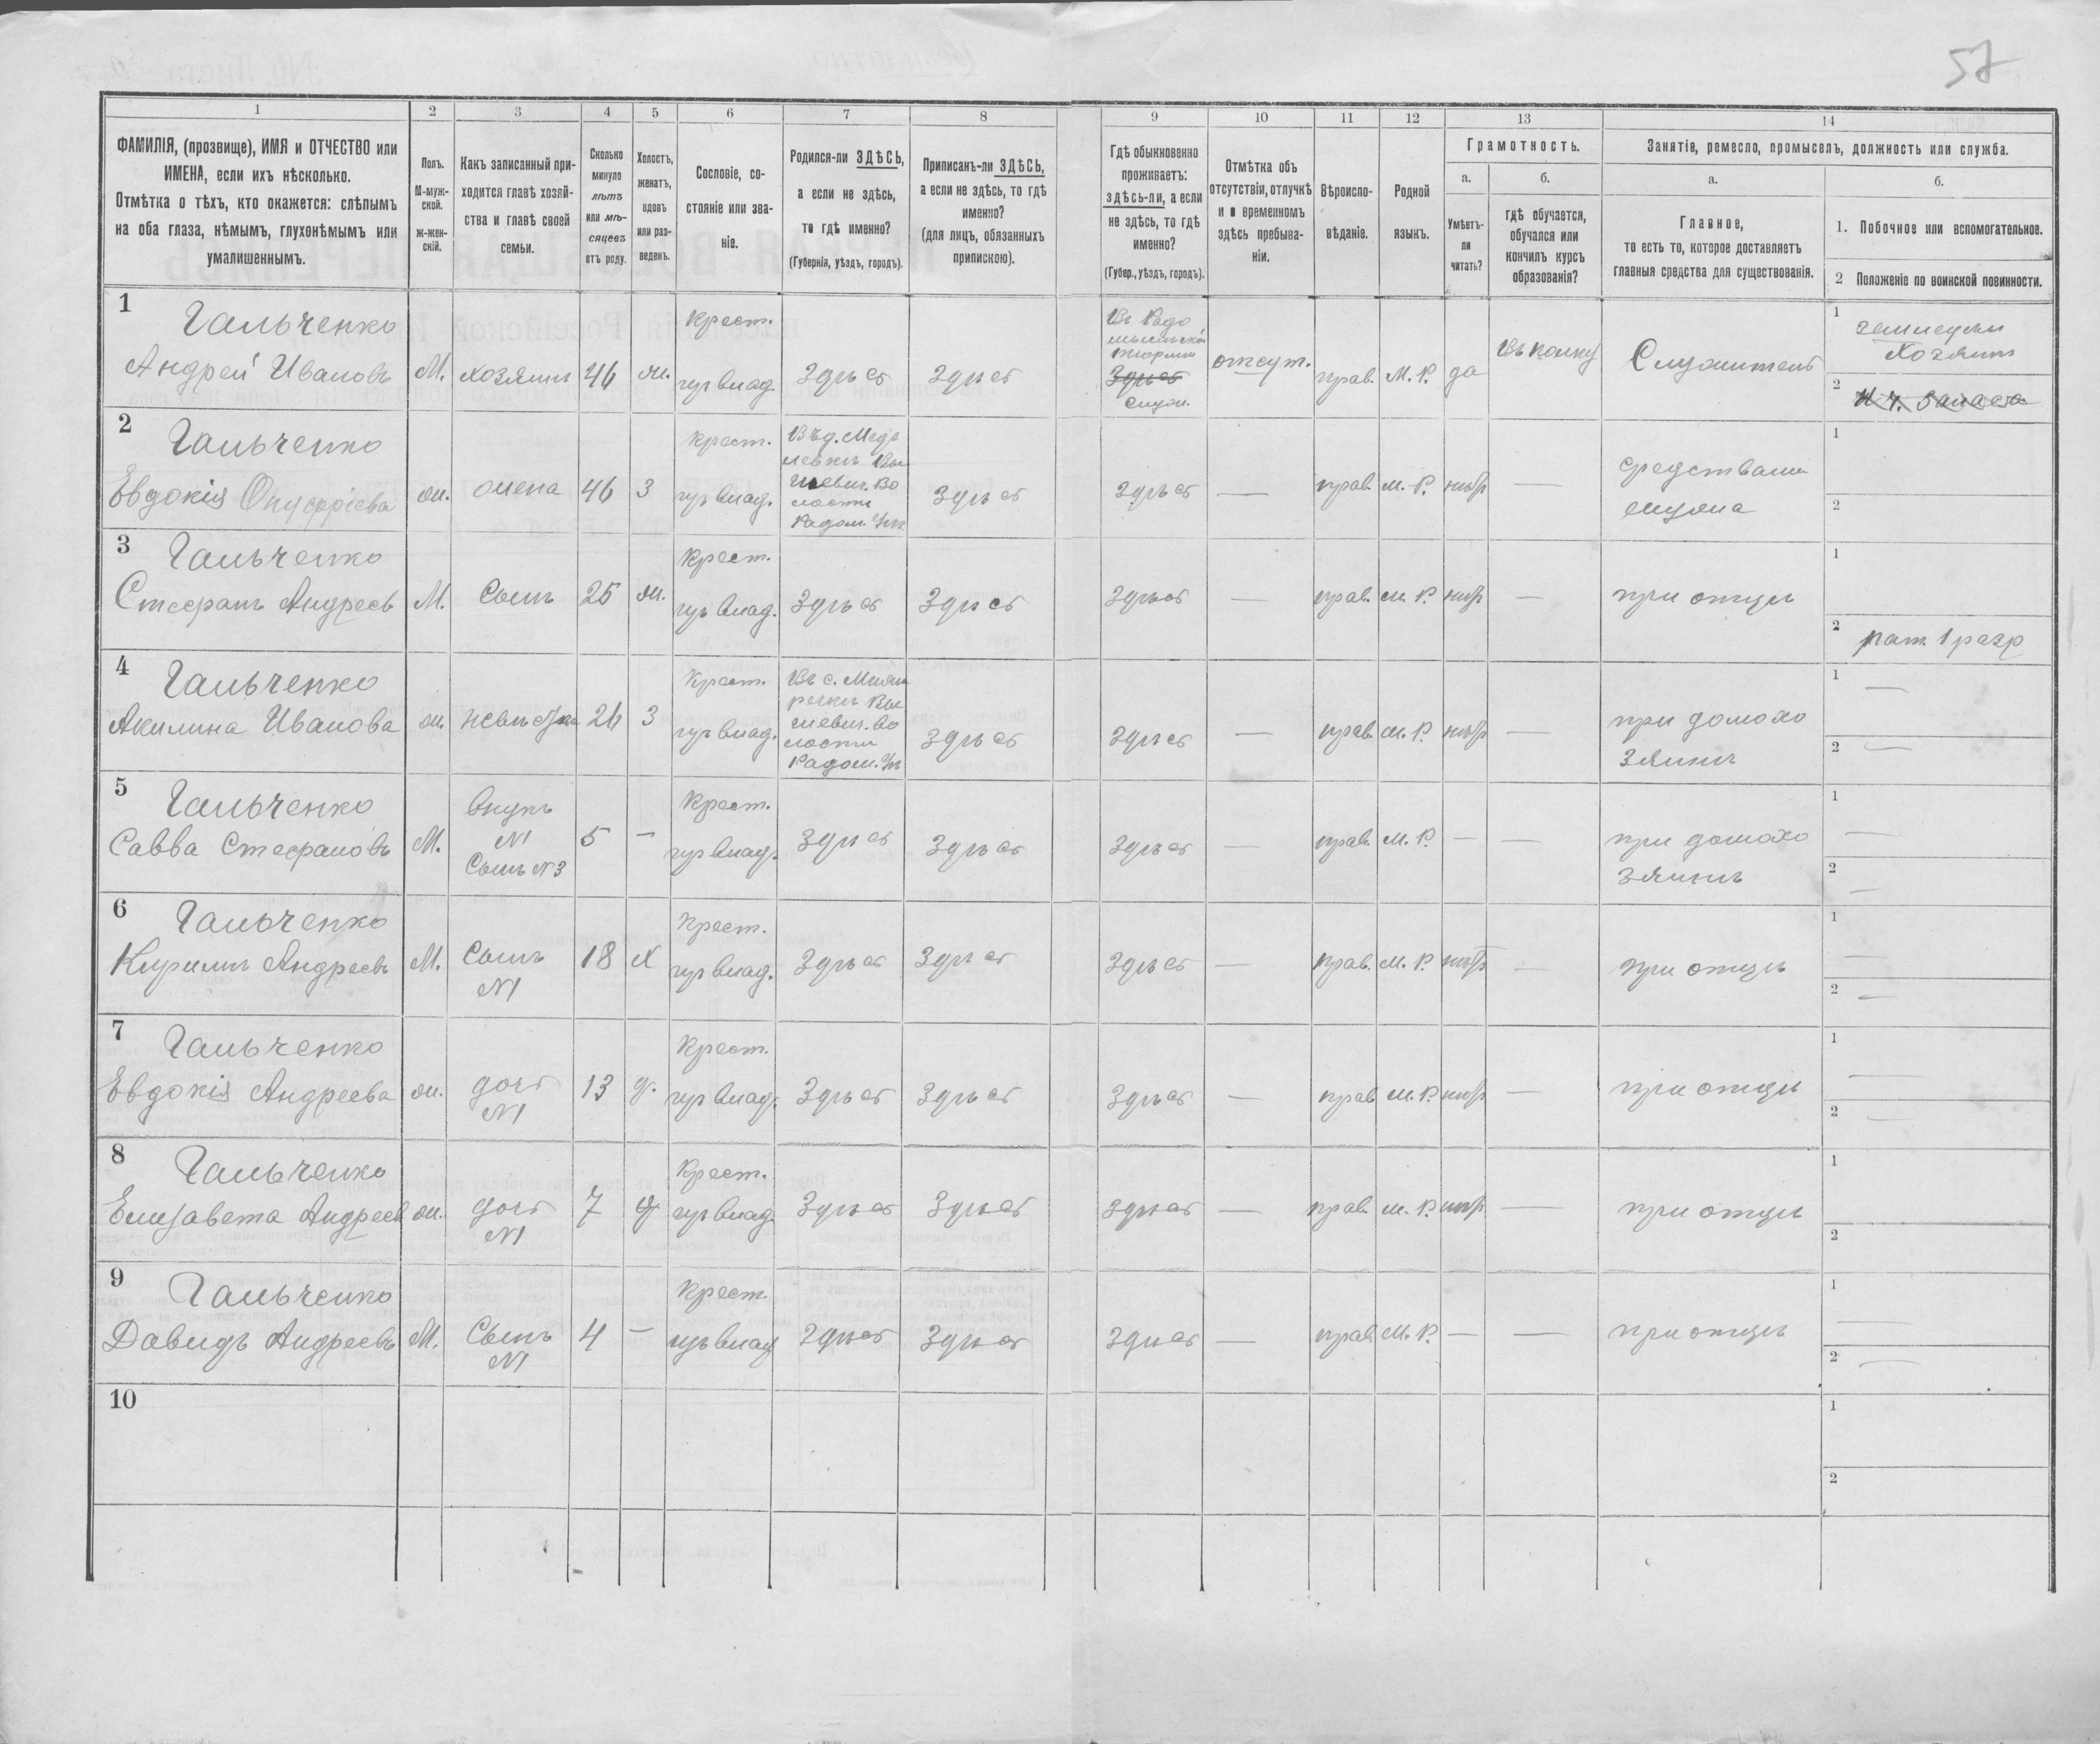 57
1
2
3
4
5
6
7
8
9
10
11
12
13
14
ФАМИЛІЯ, (прозвище), ИМЯ и ОТЧЕСТВО или
ИМЕНА, если ихъ нѣсколько.
Отмѣтка о тѣхъ, кто окажется: слѣпымъ
на оба глаза, нѣмымъ, глухонѣмымъ или
умалишеннымъ.
Полъ.
М-муж-
ской.
ж-жен-
скій.
Какъ записанный при-
ходится главѣ хозяй-
ства и главѣ своей
семьи.
Сколько
минуло
лѣтъ
или мѣ-
сяцевъ
отъ роду.
Холостъ,
женатъ,
вдовъ
или раз-
веденъ.
Сословіе, со-
стояніе или зва-
ніе.
Родился-ли ЗДѢСЬ,
а если не здѣсь,
то гдѣ именно?
(Губернія, уѣздъ, городъ).
Приписанъ-ли ЗДѢСЬ,
а если не здѣсь, то гдѣ
именно?
(для лицъ, обязанныхъ
припискою).
Гдѣ обыкновенно
проживаетъ:
здѣсь-ли, а если
не здѣсь, то гдѣ
именно?
(Губер., уѣздъ, городъ).
Отмѣтка объ
отсутствіи, отлучкѣ
и о временномъ
здѣсь пребыва-
ніи.
Вѣроиспо-
вѣданіе.
Родной
языкъ.
Грамотность.
а.
Умѣетъ-
ли
читать?
б.
гдѣ обучается,
обучался или
кончилъ курсъ
образованія?
Занятіе, ремесло, промыселъ, должность или служба.
а.
Главное,
то есть то, которое доставляетъ
главныя средства для существованія.
б.
1. Побочное или вспомогательное.
2 Положеніе по воинской повинности.
1
Гальченко
Андрей Ивановъ
М.
хозяинъ
46
ж.
Крест.
гуг влад.
Здѣсь
Здѣсь
Въ Радо
мысльской
тюрьмѣ
Здѣсь
служ.
отсут.
прав.
М. Р.
да
Въ полку
Служитель
1
земледѣл
Хозяинъ
2
Н ч. запаса
2
Гальченко
Евдокія Онуфріева
ж.
жена
46
З
Крест.
влад.
Въ д. Меде
левкѣ Вы
шевич. Во
лости
Радом. у.
Здѣсь
Здѣсь
—
прав.
м. Р.
нѣт
—
средствами
мужа
1
2
3
Гальченко
Стефанъ Андреев
М.
Сынъ
25
ж.
Крест.
влад.
Здѣсь
Здѣсь
Здѣсь
—
прав.
м. Р.
нѣт
—
при отцѣ
1
2
рат. 1 разр
4
Гальченко
Акилина Иванова
ж.
невѣстка
26
З
Крест.
влад.
Въ с.
речкѣ Вы
шевич. Во
лости
Радом. у.
Здѣсь
Здѣсь
—
прав.
м. Р.
нѣт
—
при домохо
зяинѣ
1
—
2
—
5
Гальченко
Савва Стефановъ
М.
Внукъ
№1
Сынъ №3
5
—
Крест.
влад.
Здѣсь
Здѣсь
Здѣсь
—
прав.
М. Р.
—
—
при домохо
зяинѣ
1
—
2
—
6
Гальченко
Кирилъ Андреевъ
М.
Сынъ
№1
18
Х
Крест.
влад.
Здѣсь
Здѣсь
Здѣсь
—
прав.
М. Р.
нѣт
—
при отцѣ
1
—
2
—
7
Гальченко
Евдокія Андреева
ж.
дочь
№1
13
д.
Крест.
влад.
Здѣсь
Здѣсь
Здѣсь
—
прав
М. Р.
нѣт
—
при отцѣ
1
—
2
—
8
Гальченко
Елизавета Андреев
ж.
дочь
№1
7
д
Крест.
влад.
Здѣсь
Здѣсь
Здѣсь
—
прав.
м. Р.
нѣт
—
при отцѣ
1
2
9
Гальченко
Давидъ Андреевъ
М.
Сынъ
№1
4
—
Крест.
влад
Здѣсь
Здѣсь
Здѣсь
—
прав.
М. Р.
—
—
при отцѣ
1
—
2
—
10
1
2